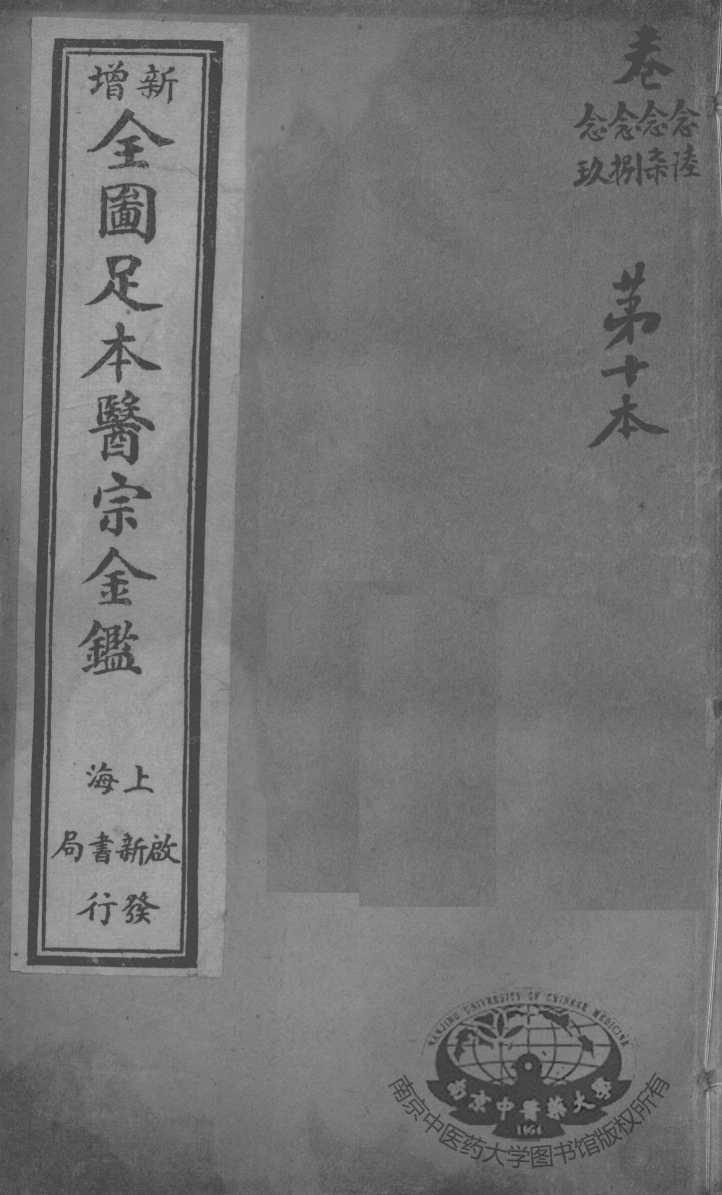 卷
念陸
念柒
念捌
念玖
第十本
新增
全圖足本醫宗金鑑
上海
啟新書局
發行
NANJING UNIVERSITY OF CHINESE MEDICINE
南京中醫藥大學
1954
南京中医药大学图书馆版权所有